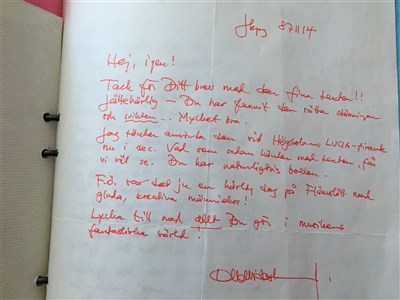 Jkpg 871114
Hej, igen!
Tack för Ditt brev med den fina texten!!
Jättehärlig – Du har funnit den rätta stämningen
och vikten... Mycket bra.
Jag tänker använda den vid Högskolans LUCIA-firande
nu i dec. Vad som sedan händer med texten, får
vi väl se. Du har naturligtvis
F.ö. var det ju en härlig dag på Flämslätt med
glada, kreativa människor!
Lycka till med allt Du gör i musikens
fantastiska värld!